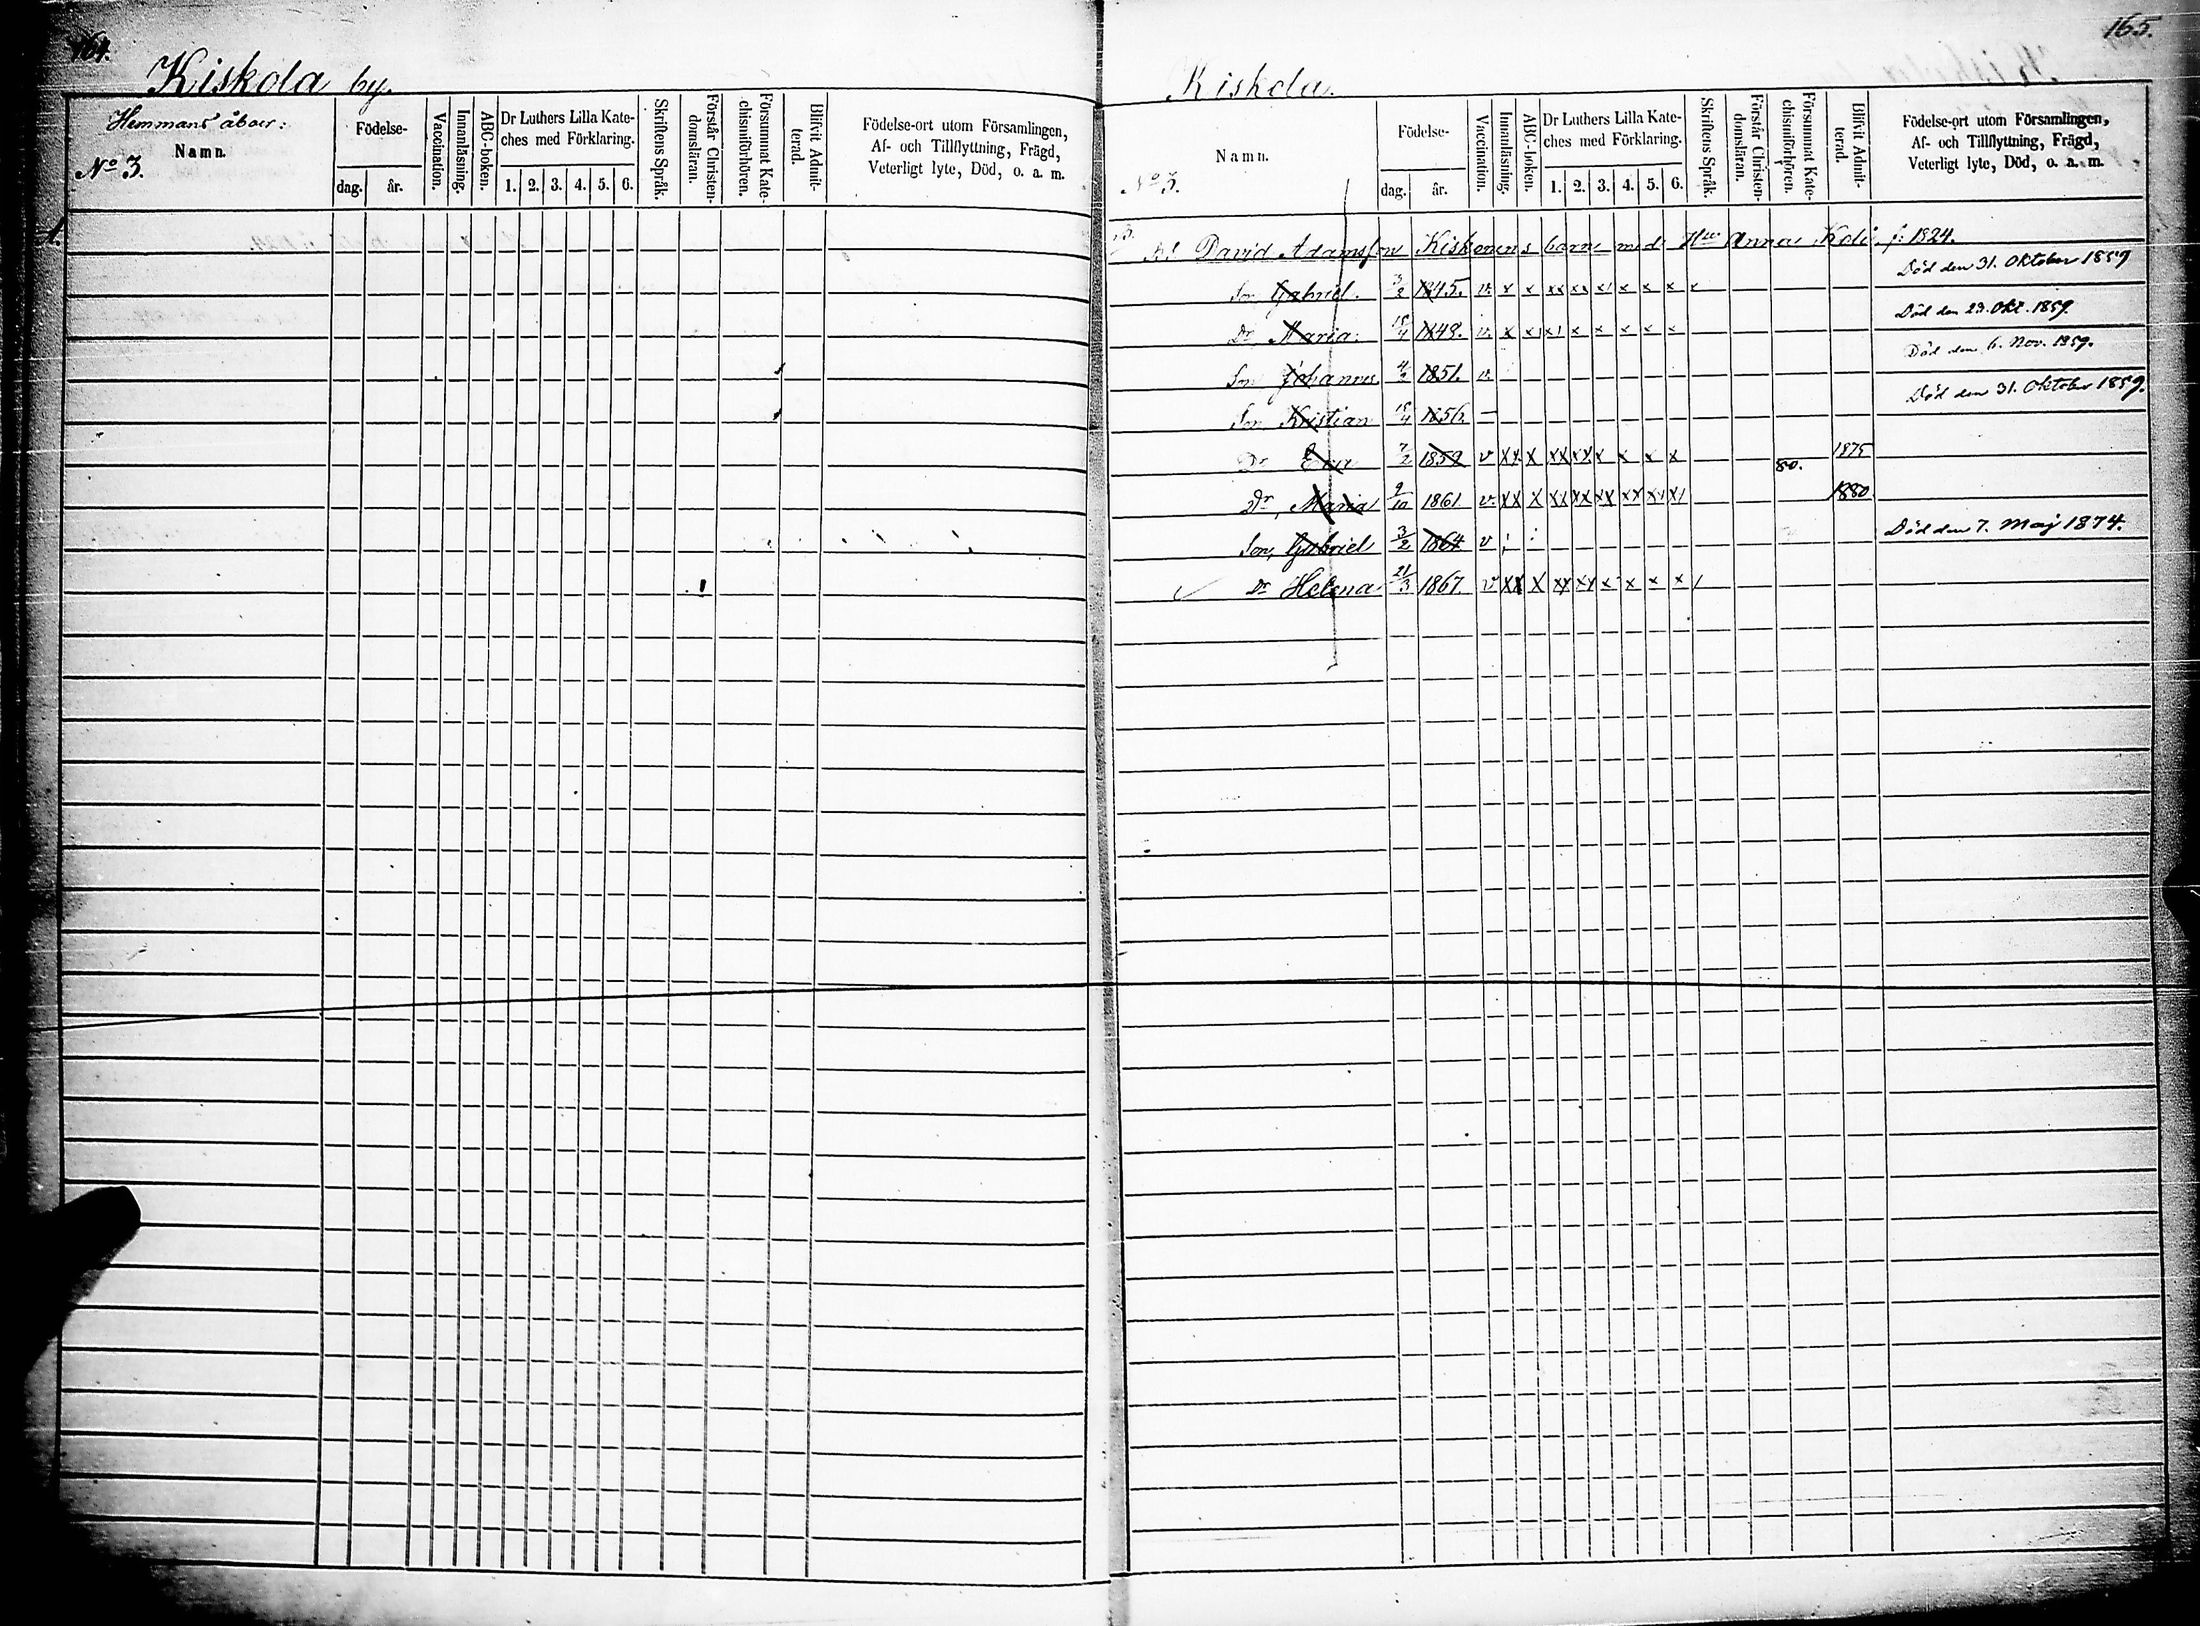 164.
Kiskola by.
Hemmans åboer:
Namn.
No 3.
Födelse-
dag. år.
Vaccination.
Innanläsning.
ABC-boken.
Dr Luthers Lilla Kate-
ches med Förklaring.
1. 2. 3. 4. 5. 6.
Skriftens Språk.
Förstår Christen-
domsläran.
Försummat Kate-
chismiförhören.
Blifvit Admit-
terad.
Födelse-ort utom Församlingen,
Af- och Tillflyttning, Frägd,
Veterligt lyte, Död, o. a. m.
1.
165.
Kiskola.
Namn.
No 3.
Födelse-
dag. år.
Vaccination.
Innanläsning.
ABC-boken.
Dr Luthers Lilla Kate-
ches med Förklaring.
1. 2. 3. 4. 5. 6.
Skriftens Språk.
Förstår Christen-
domsläran.
Försummat Kate-
chismiförhören.
Blifvit Admit-
terad.
Födelse-ort utom Församlingen,
Af- och Tillflyttning, Frägd,
Veterligt lyte, Död, o. a. m.
David Adamsson Kiskonens barn med Hu Anna f: 1824.
Son Gabriel. 3/2 1845. v. x x xx xx x x x x Död den 31. Oktober 1859
Dr Maria. 18/4 1848. v. x x x x x x x Död den 23. Okt. 1859.
Son Johannes 1851. v. Död den 6. Nov. 1859.
Son Kristian 18/4 1856. Död den 31. Oktober 1859.
Dr Eva 7/2 1859 v xx x xx xx x x x x 1875
Dr, Maria 9/10 1861 v. xx x xx xx xx xx x x 80. 1880
Son, Gabriel 3/2 1864 v Död den 7. Maj 1874.
Dr Helena 21/3 1867. v xx x xx xx x x x x